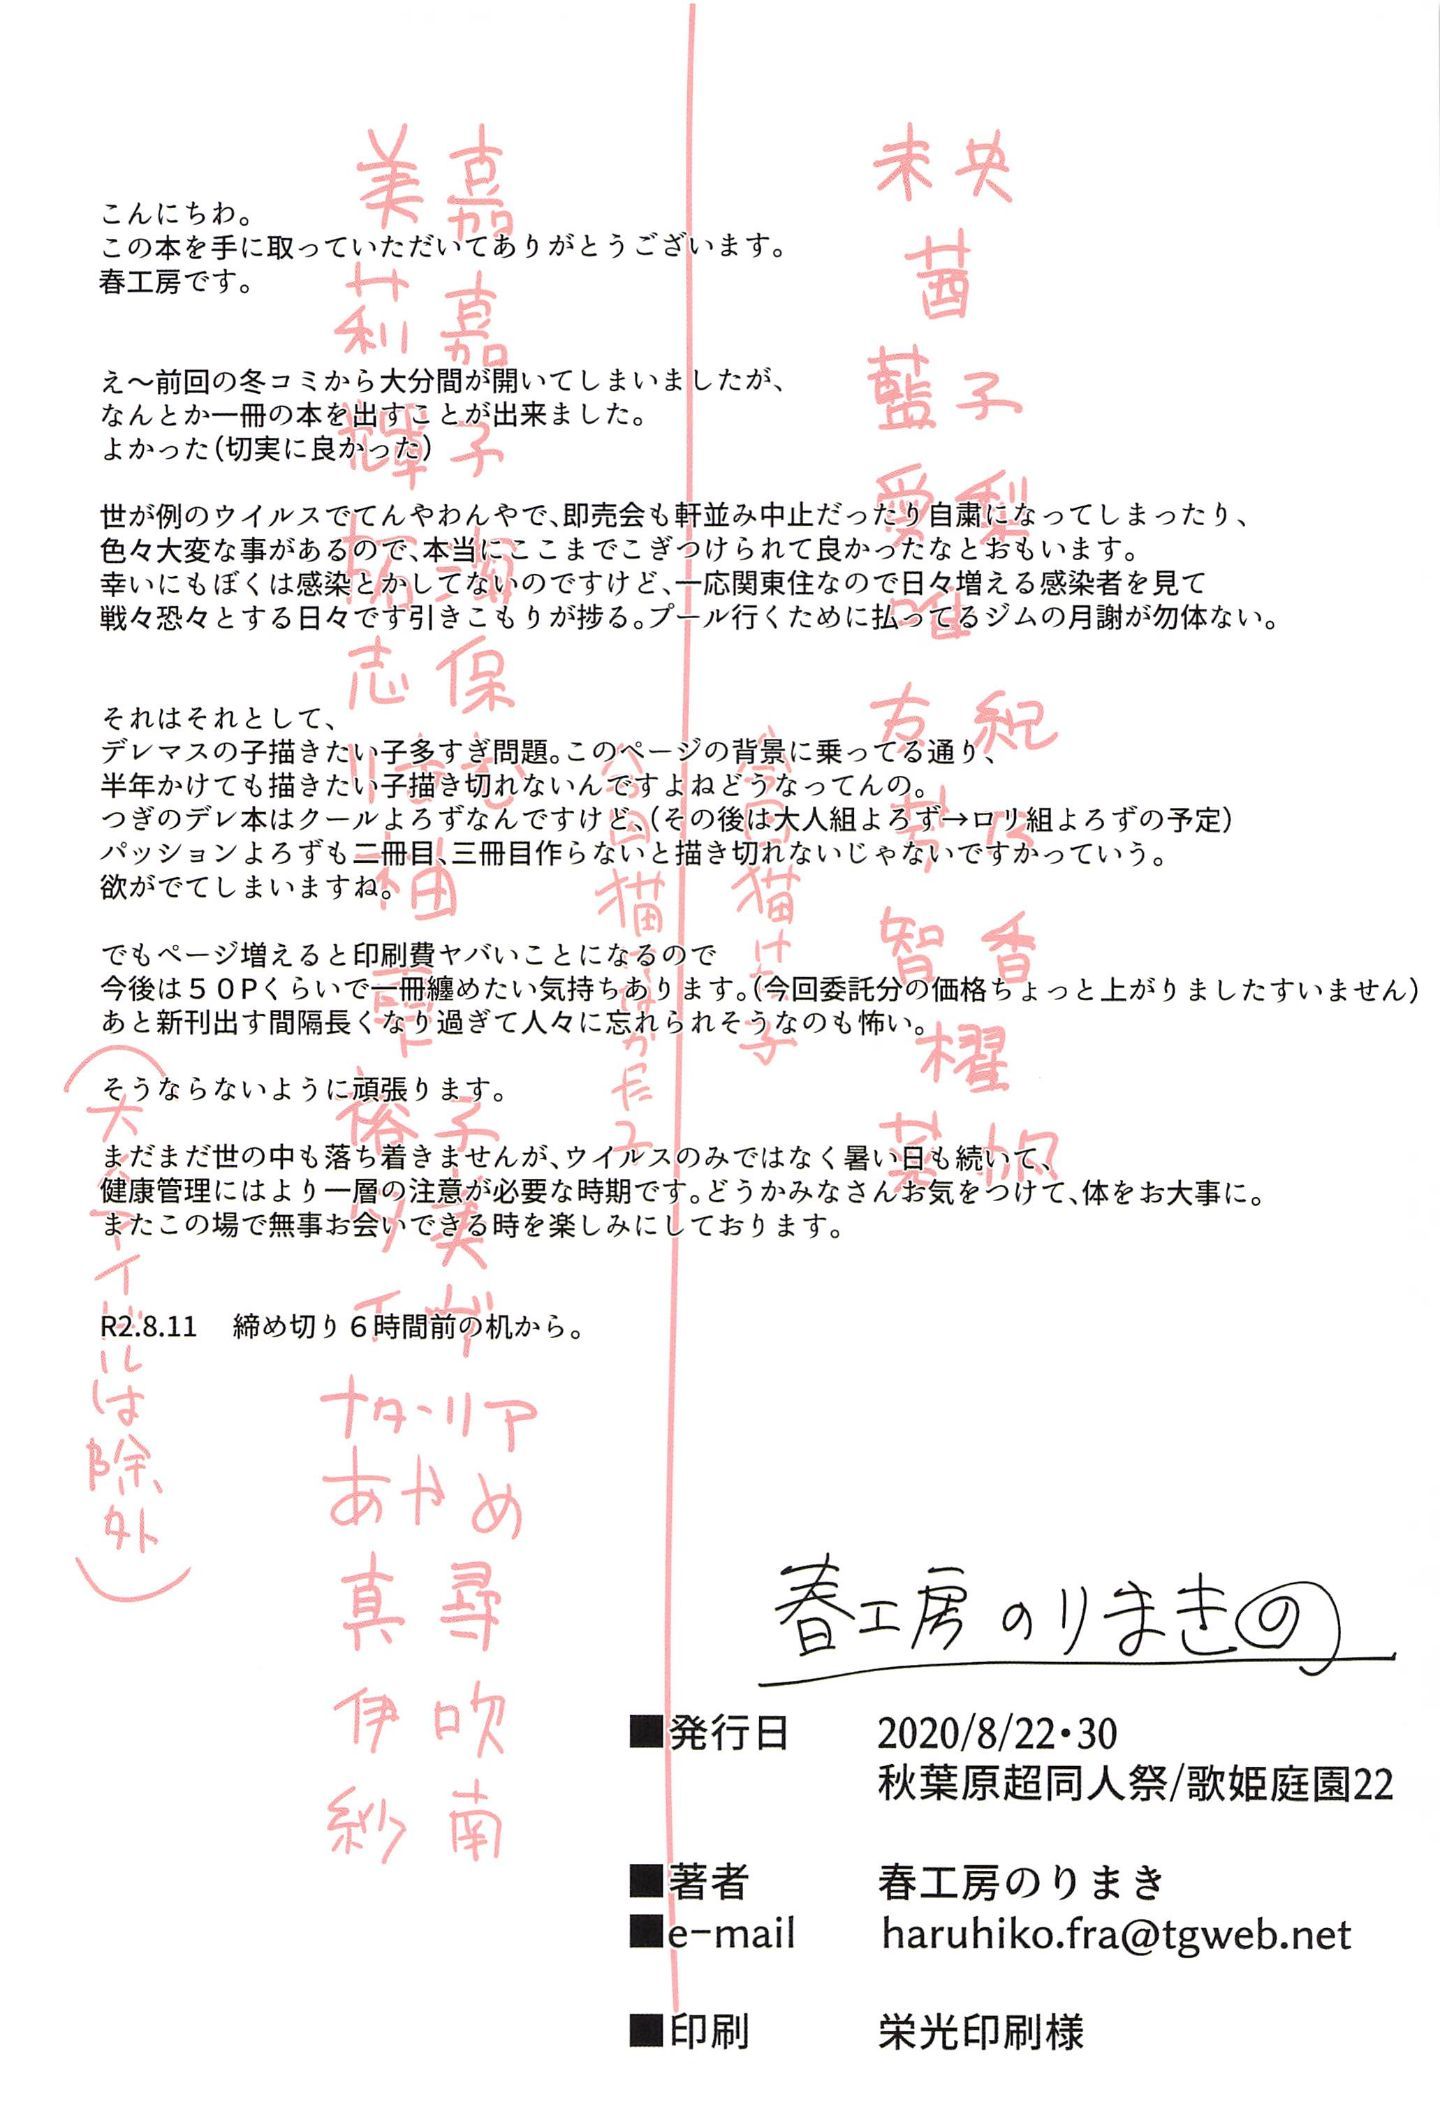 こんにちわ。
この本を手に取っていただいてありがとうございます。
春工房です。
え～前回の冬コミから大分間が開いてしまいましたが、
なんとか一冊の本を出すことが出来ました。
よかった(切実に良かった)
世が例のウイルスでてんやわんやで、即売会も軒並み中止だったり自粛になってしまったり、
色々大変な事があるので、本当にここまでこぎつけられて良かったなとおもいます。
幸いにもぼくは感染とかしてないのですけど、一応関東住なので日々増える感染者を見て
戦々恐々とする日々です引きこもりが捗る。プール行くために払ってるジムの月謝が勿体ない。
それはそれとして、
デレマスの子描きたい子多すぎ問題。このページの背景に乗ってる通り、
半年かけても描きたい子描き切れないんですよねどうなってんの。
つぎのデレ本はクールよろずなんですけど、(その後は大人組よろず→ロリ組よろずの予定)
パッションよろずも二冊目、三冊目作らないと描き切れないじゃないですかっていう。
欲がでてしまいますね。
でもページ増えると印刷費ヤバいことになるので
今後は５０Pくらいで一冊纏めたい気持ちあります。(今回委託分の価格ちょっと上がりましたすいません)
あと新刊出す間隔長くなり過ぎて人々に忘れられそうなのも怖い。
そうならないように頑張ります。
まだまだ世の中も落ち着きませんが、ウイルスのみではなく暑い日も続いて、
健康管理にはより一層の注意が必要な時期です。どうかみなさんお気をつけて、体をお大事に。
またこの場で無事お会いできる時を楽しみにしております。
R2.8.11 締め切り６時間前の机から。
未央
茜
藍子
愛梨
唯
友紀
芳乃
智香
櫂
菜帆
今回描けた子
今回描けなかった子
美嘉
莉嘉
輝子
拓海
志保
りあむ
柚
雫
裕子
ナターリア
あやめ
真尋
伊吹
紗南
春工房のりまきの
■発行日 2020/8/22・30
秋葉原超同人祭/歌姫庭園22
■著者 春工房のりまき
■e-mail haruhiko.fra@tgweb.net
■印刷 栄光印刷様